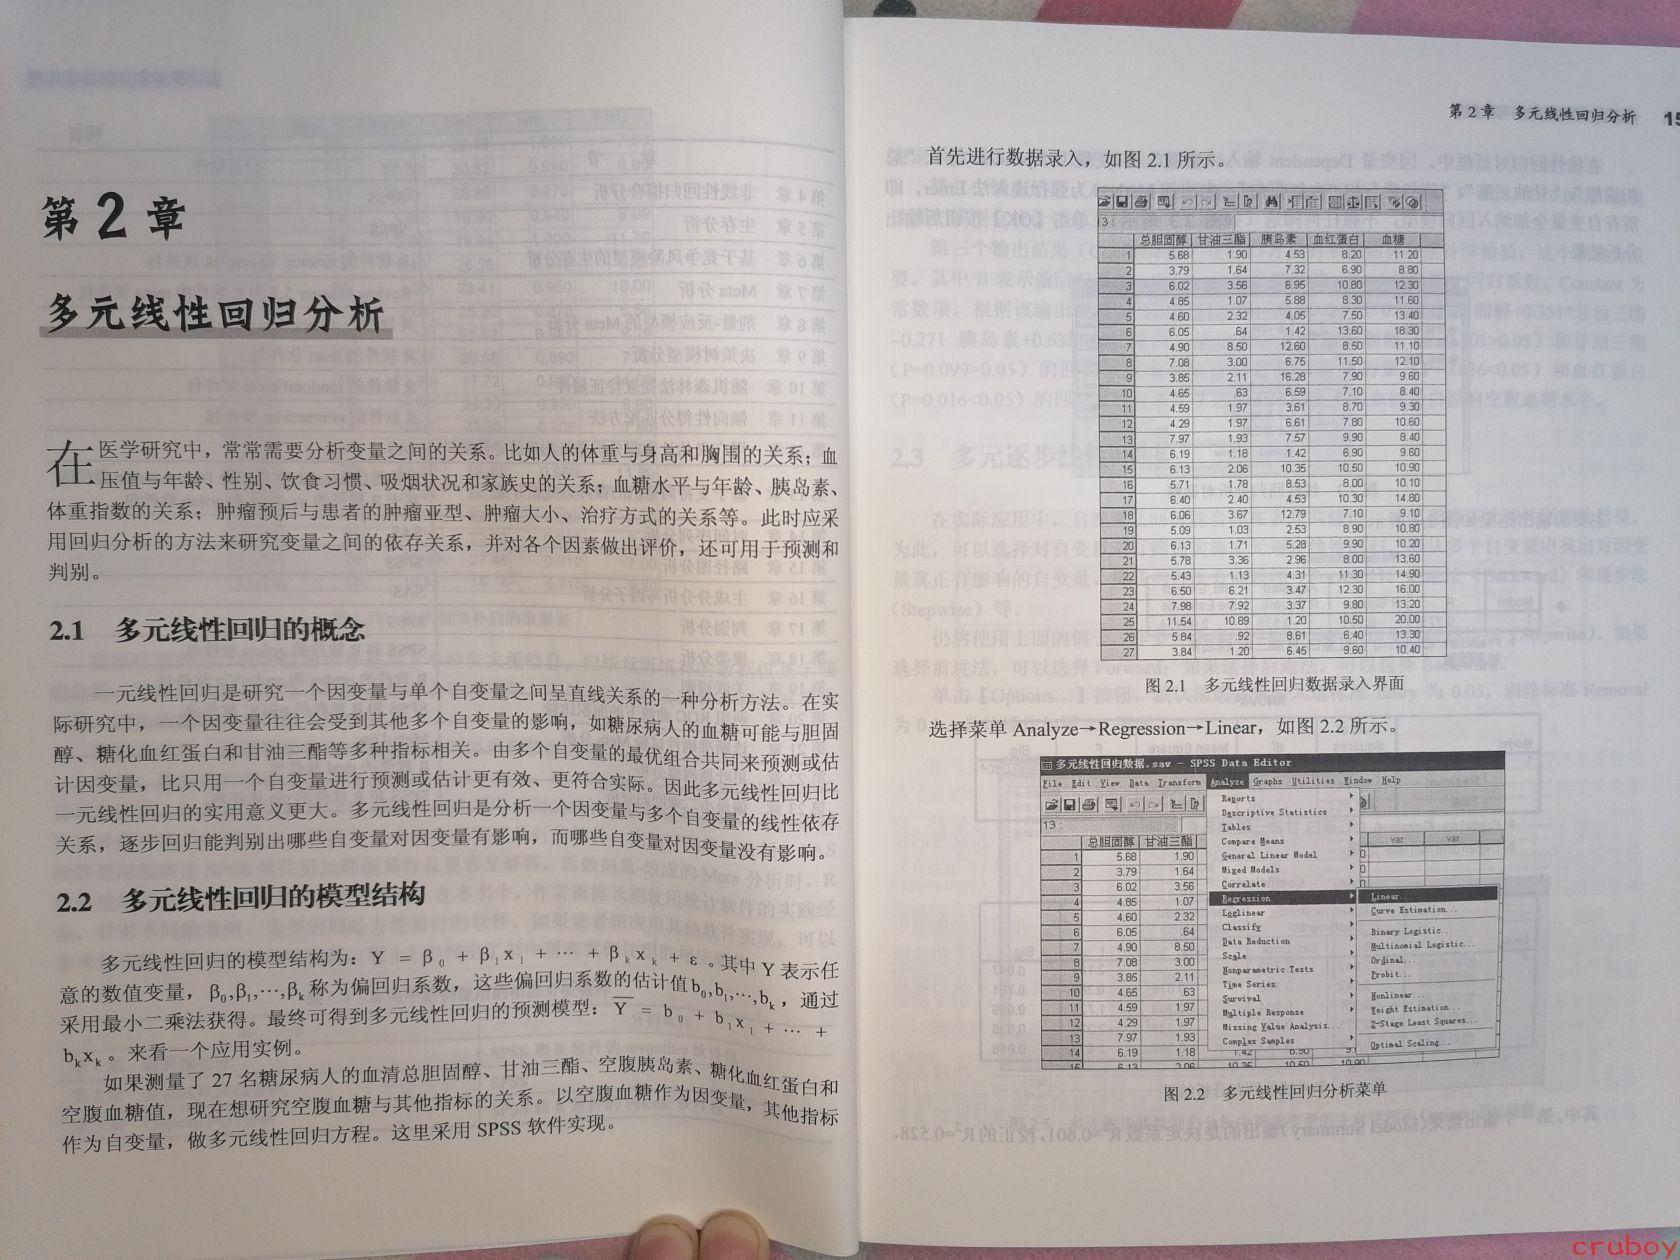 第2章
多元线性回归分析
在医学研究中，常常需要分析变量之间的关系。比如人的体重与身高和胸围的关系；血
压值与年龄、性别、饮食习惯、吸烟状况和家族史的关系；血糖水平与年龄、胰岛素、
体重指数的关系；肿瘤预后与患者的肿瘤亚型、肿瘤大小、治疗方式的关系等。此时应采
用回归分析的方法来研究变量之间的依存关系，并对各个因素做出评价，还可用于预测和
判别。
2.1 多元线性回归的概念
一元线性回归是研究一个因变量与单个自变量之间呈直线关系的一种分析方法。在实
际研究中，一个因变量往往会受到其他多个自变量的影响，如糖尿病人的血糖可能与胆固
醇、糖化血红蛋白和甘油三酯等多种指标相关。由多个自变量的最优组合共同来预测或估
计因变量，比只用一个自变量进行预测或估计更有效、更符合实际。因此多元线性回归比
一元线性回归的实用意义更大。多元线性回归是分析一个因变量与多个自变量的线性依存
关系，逐步回归能判别出哪些自变量对因变量有影响，而哪些自变量对因变量没有影响。
2.2 多元线性回归的模型结构
多元线性回归的模型结构为：Y = β₀ + β₁x₁ + ⋯ + βₖxₖ + ε。其中 Y 表示任
意的数值变量，β₀,β₁,⋯,βₖ称为偏回归系数，这些偏回归系数的估计值b₀,b₁,⋯,bₖ，通过
采用最小二乘法获得。最终可得到多元线性回归的预测模型：Y̅ = b₀ + b₁x₁ + ⋯ +
bₖxₖ。来看一个应用实例。
如果测量了 27 名糖尿病人的血清总胆固醇、甘油三酯、空腹胰岛素、糖化血红蛋白和
空腹血糖值，现在想研究空腹血糖与其他指标的关系。以空腹血糖作为因变量，其他指标
作为自变量，做多元线性回归方程。这里采用 SPSS 软件实现。
第 2 章 多元线性回归分析 15
首先进行数据录入，如图 2.1 所示。
3 :
总胆固醇 甘油三酯 胰岛素 血红蛋白 血糖
1 5.68 1.90 4.53 8.20 11.20
2 3.79 1.64 7.32 6.90 8.80
3 6.02 3.56 6.95 10.80 12.30
4 4.85 1.07 5.88 8.30 11.60
5 4.60 2.32 4.05 7.50 13.40
6 6.05 .64 1.42 13.60 18.30
7 4.90 8.50 12.60 8.50 11.10
8 7.08 3.00 6.75 11.50 12.10
9 3.85 2.11 16.28 7.90 9.60
10 4.65 .63 6.59 7.10 8.40
11 4.59 1.97 3.61 8.70 9.30
12 4.29 1.97 6.61 7.80 10.60
13 7.97 1.93 7.57 9.90 8.40
14 6.19 1.18 1.42 6.90 9.60
15 6.13 2.06 10.35 10.50 10.90
16 5.71 1.78 8.53 8.00 10.10
17 6.40 2.40 4.53 10.30 14.80
18 6.06 3.67 12.79 7.10 9.10
19 5.09 1.03 2.53 8.90 10.80
20 6.13 1.71 5.28 9.90 10.20
21 5.78 3.36 2.96 8.00 13.60
22 5.43 1.13 4.31 11.30 14.90
23 6.50 6.21 3.47 12.30 16.00
24 7.98 7.92 3.37 9.80 13.20
25 11.54 10.89 1.20 10.50 20.00
26 5.84 .92 8.61 6.40 13.30
27 3.84 1.20 6.45 9.60 10.40
图 2.1 多元线性回归数据录入界面
选择菜单 Analyze→Regression→Linear，如图 2.2 所示。
多元线性回归数据.sav - SPSS Data Editor
File Edit View Data Transform Analyze Graphs Utilities Window Help
13 :
总胆固醇 甘油三酯 var var
1 5.68 1.90
2 3.79 1.64
3 6.02 3.56
4 4.85 1.07
5 4.60 2.32
6 6.05 .64
7 4.90 8.50
8 7.08 3.00
9 3.85 2.11
10 4.65 .63
11 4.59 1.97
12 4.29 1.97
13 7.97 1.93
14 6.19 1.18 1.42 6.90
15 6.13 2.06 10.35 10.50 10.90
Reports
Descriptive Statistics
Tables
Compare Means
General Linear Model
Mixed Models
Correlate
Regression
Loglinear
Classify
Data Reduction
Scale
Nonparametric Tests
Time Series
Survival
Multiple Response
Missing Value Analysis...
Complex Samples
Linear...
Curve Estimation...
Binary Logistic...
Multinomial Logistic...
Ordinal...
Probit...
Nonlinear...
Weight Estimation...
2-Stage Least Squares...
Optimal Scaling...
图 2.2 多元线性回归分析菜单
cruboy